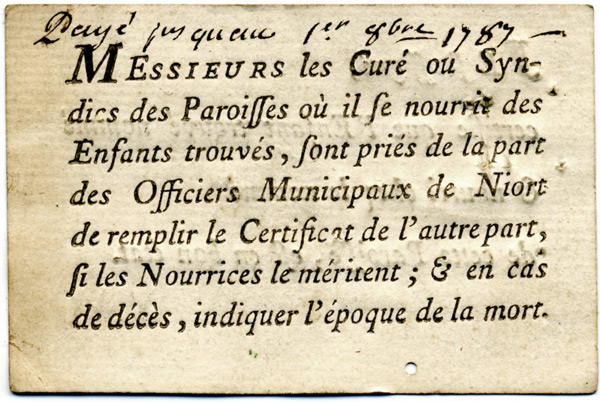 Payé jusqu'au 1er 8bre 1787 —
MESSIEURS les Curé ou Syn-
dics des Paroiſſes où il ſe nourrit des
Enfants trouvés, ſont priés de la part
des Officiers Municipaux de Niort
de remplir le Certificat de l'autre part,
ſi les Nourrices le méritent ; & en cas
de décès, indiquer l'époque de la mort.